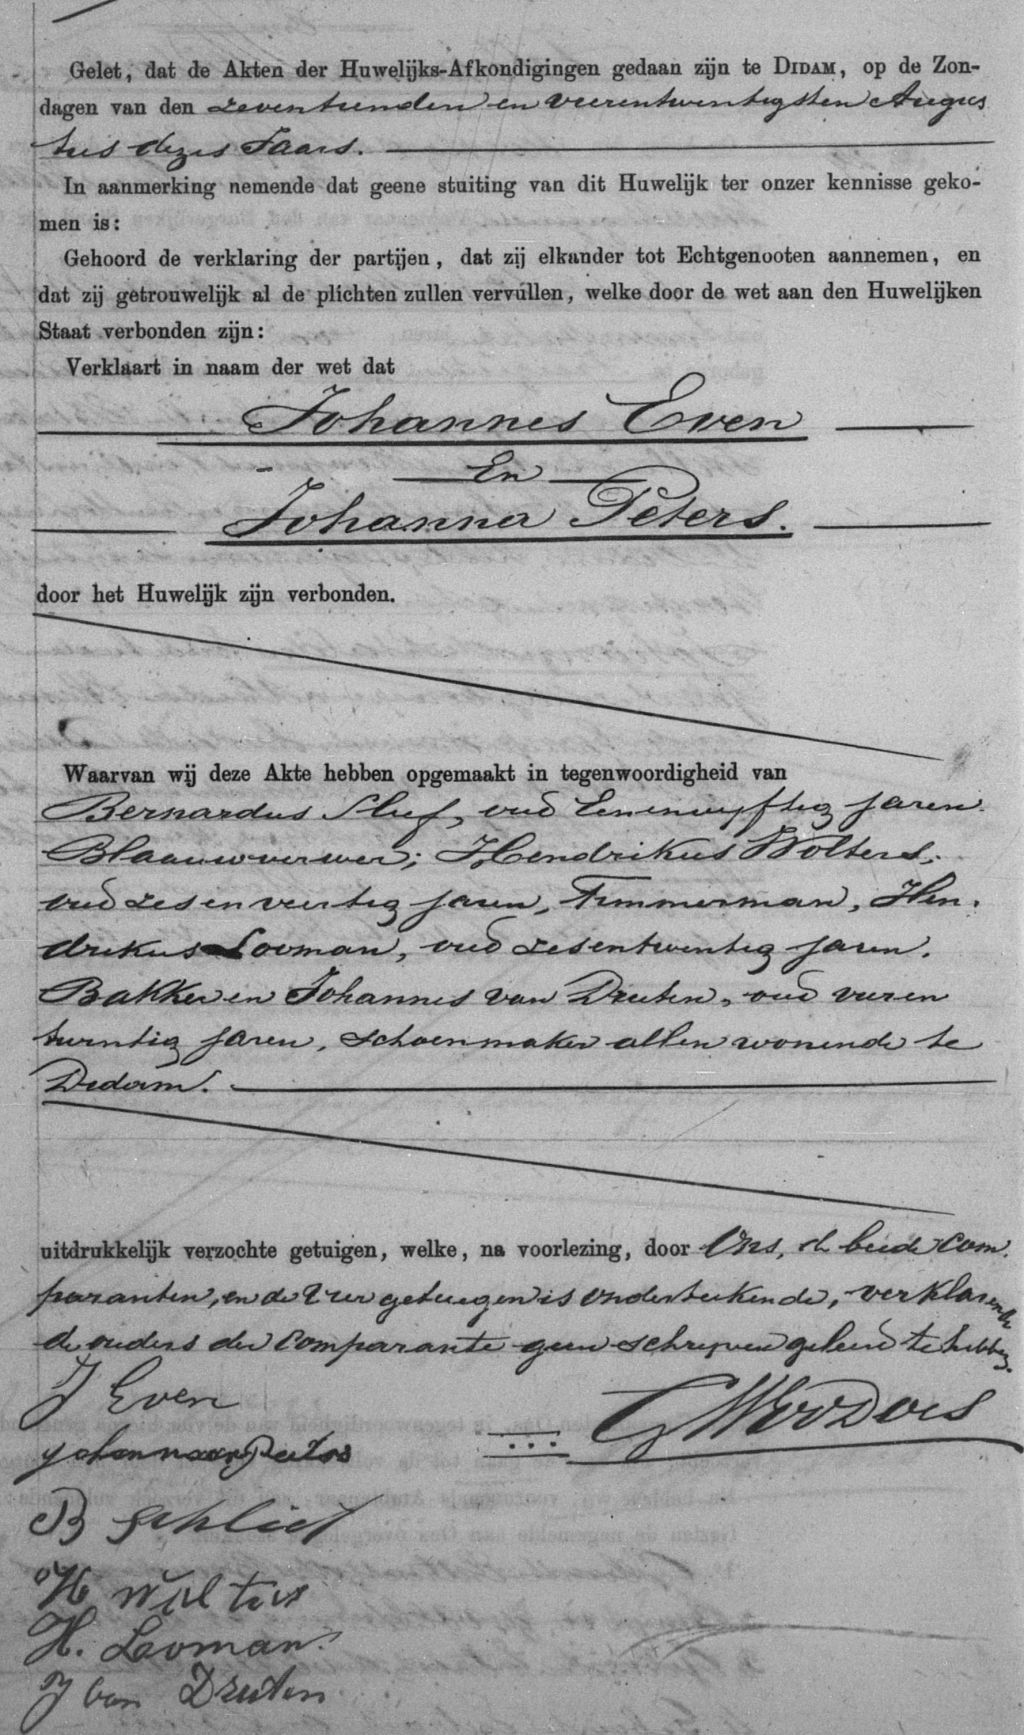 Gelet, dat de Akten der Huwelijks-Afkondigingen gedaan zijn te Didam, op de Zon-
dagen van den zeventienden en vierentwintigsten Augus
tus dezes Jaars.
In aanmerking nemende dat geene stuiting van dit Huwelijk ter onzer kennisse geko-
men is:
Gehoord de verklaring der partijen, dat zij elkander tot Echtgenooten aannemen, en
dat zij getrouwelijk al de plichten zullen vervullen, welke door de wet aan den Huwelijken
Staat verbonden zijn:
Verklaart in naam der wet dat
Johannes Even
En
Johanna Peters.
door het Huwelijk zijn verbonden.
Waarvan wij deze Akte hebben opgemaakt in tegenwoordigheid van
Bernardus oud Eenenvijftig jaren
Blaauwverwer; Hendrikus Wolters,
oud zesenveertig jaren, Timmerman, Hen,
drikus Looman, oud zesentwintig jaren,
Bakker en Johannes van Druten, oud vieren
twintig jaren, schoenmaker allen wonende te
Didam.
uitdrukkelijk verzochte getuigen, welke, na voorlezing, door Ons, de beide Com,
paranten, en de Vier getuigen is Onderteekende, verklarende
de ouders der Comparante geen schrijven geleerd te hebben.
J Even
Johanna Peters
B Schlief
H Wolters
H. Looman
J van Druten